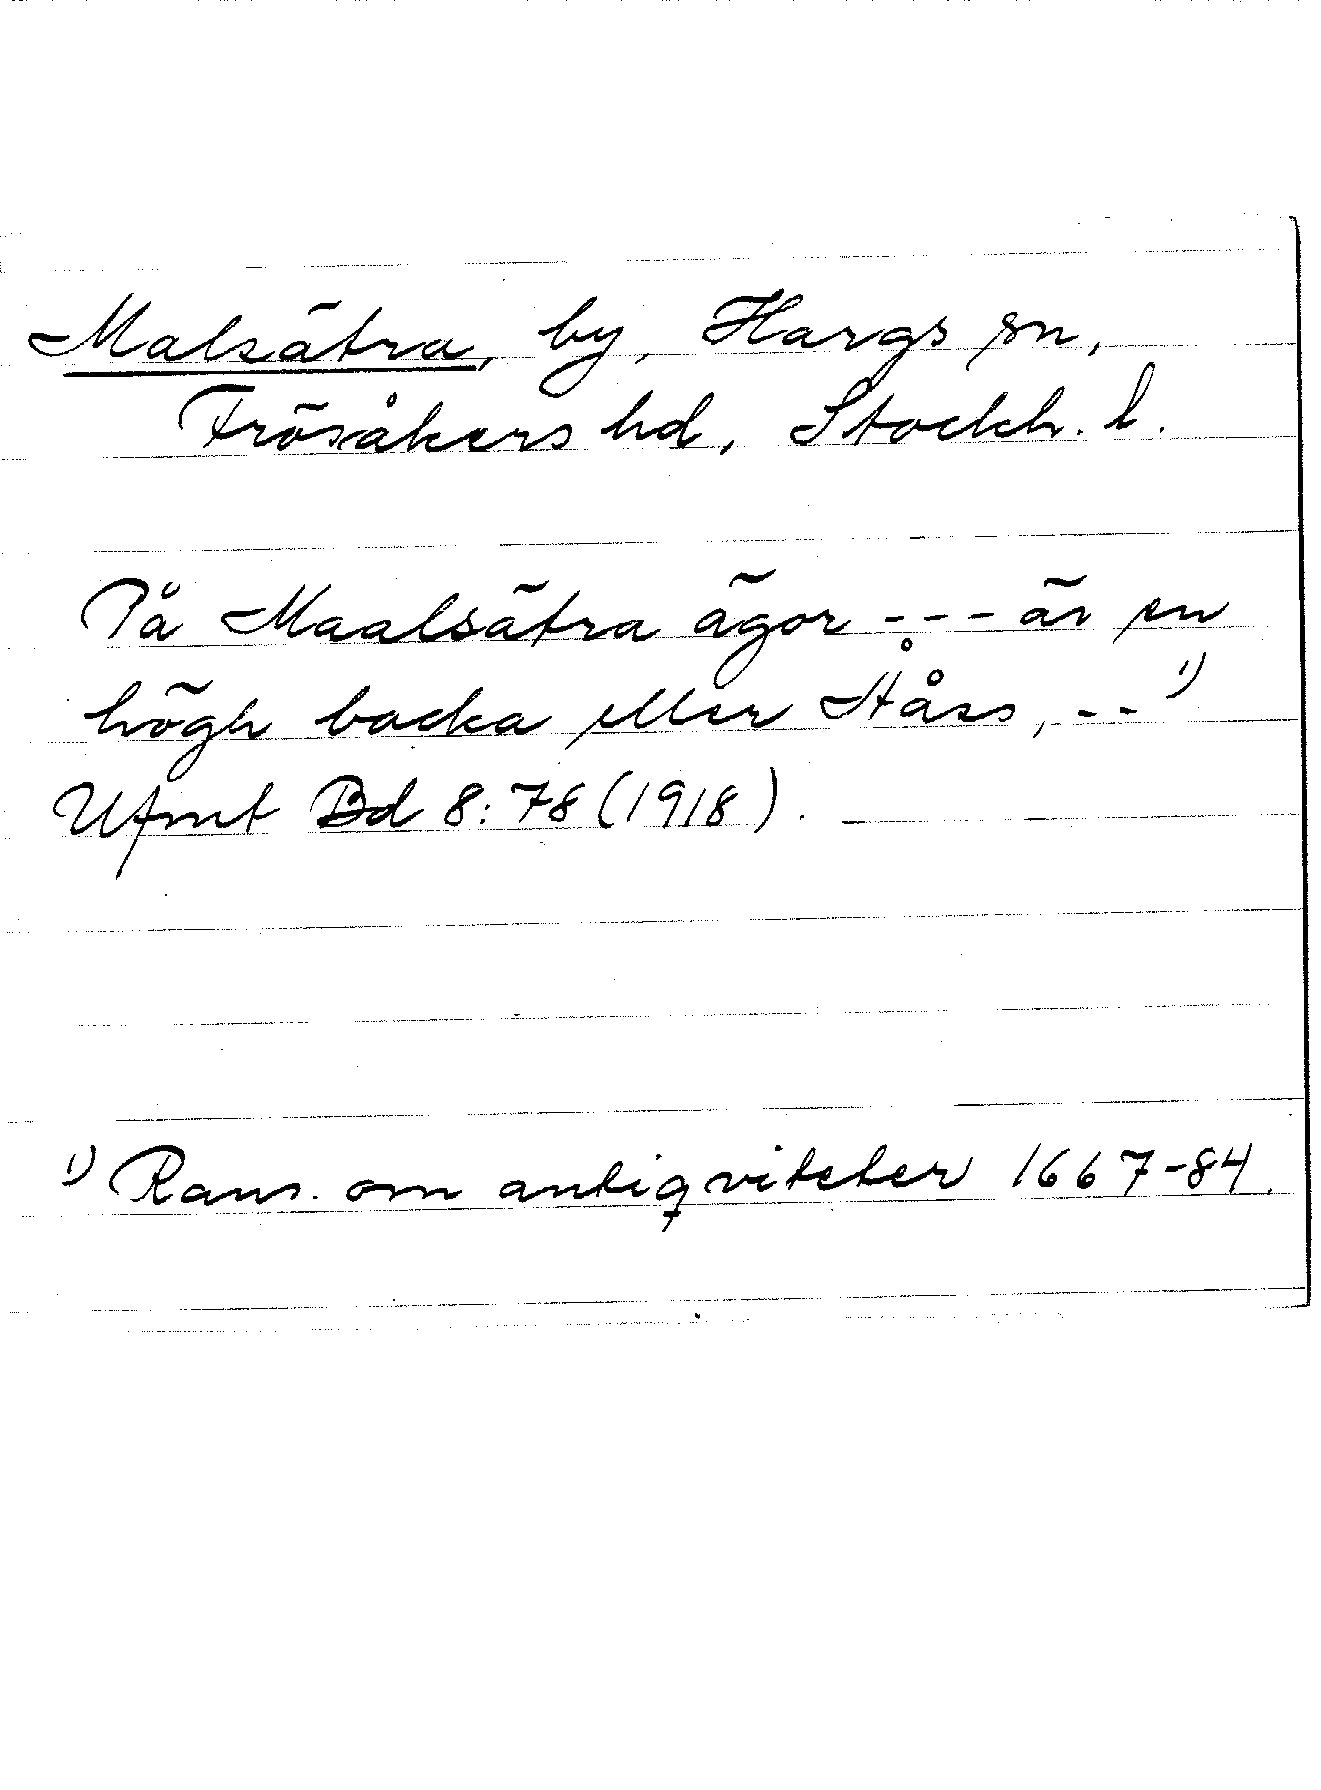 Malsätra, by, Hargs sn,
Frösåkers hd, Stockh. l.
På Maalsätra ägor --- är en
högh backa eller Håss, --¹⁾
Ufmt Bd 8:78 (1918).
¹⁾ Rans. om antiqviteter 1667-84.